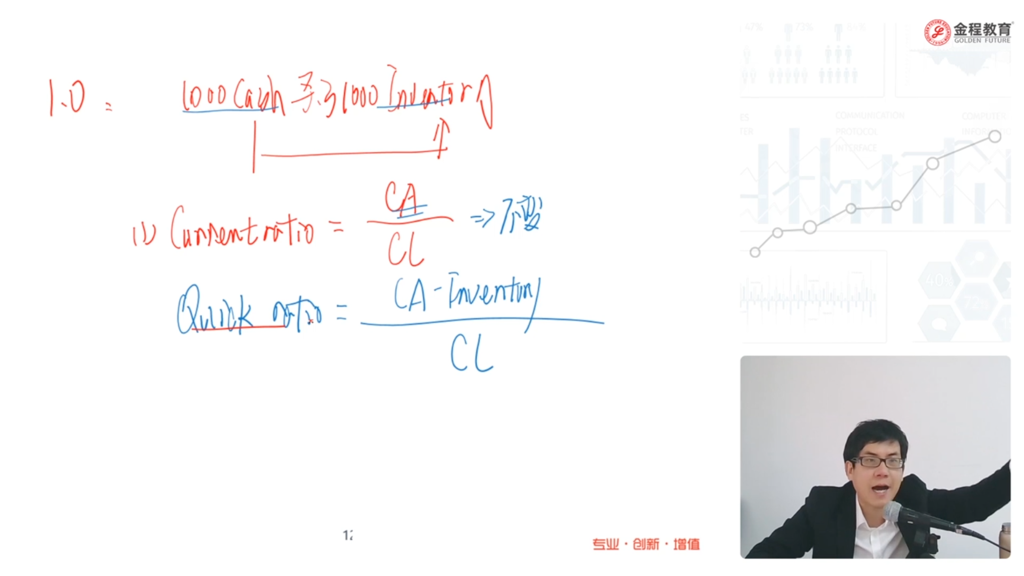 金程教育
GOLDEN FUTURE
1.0 :
1000 Cash 买了1000 Inventory
(1) Current ratio = CA / CL => 不变
Quick ratio = CA - Inventory / CL
COMMUNICATION
PROTOCOL
INTERFACE
12
专业·创新·增值